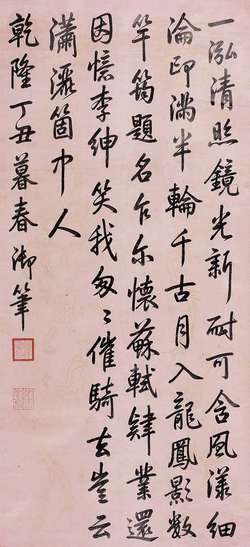 一泓清照鏡光新耐可含風漾細
淪印滿半輪千古月入龍鳳影數
竿筠題名乍尔懷蘇軾肄業還
因憶李紳笑我匆〻催騎去豈云
瀟灑箇中人
乾隆丁丑暮春御筆